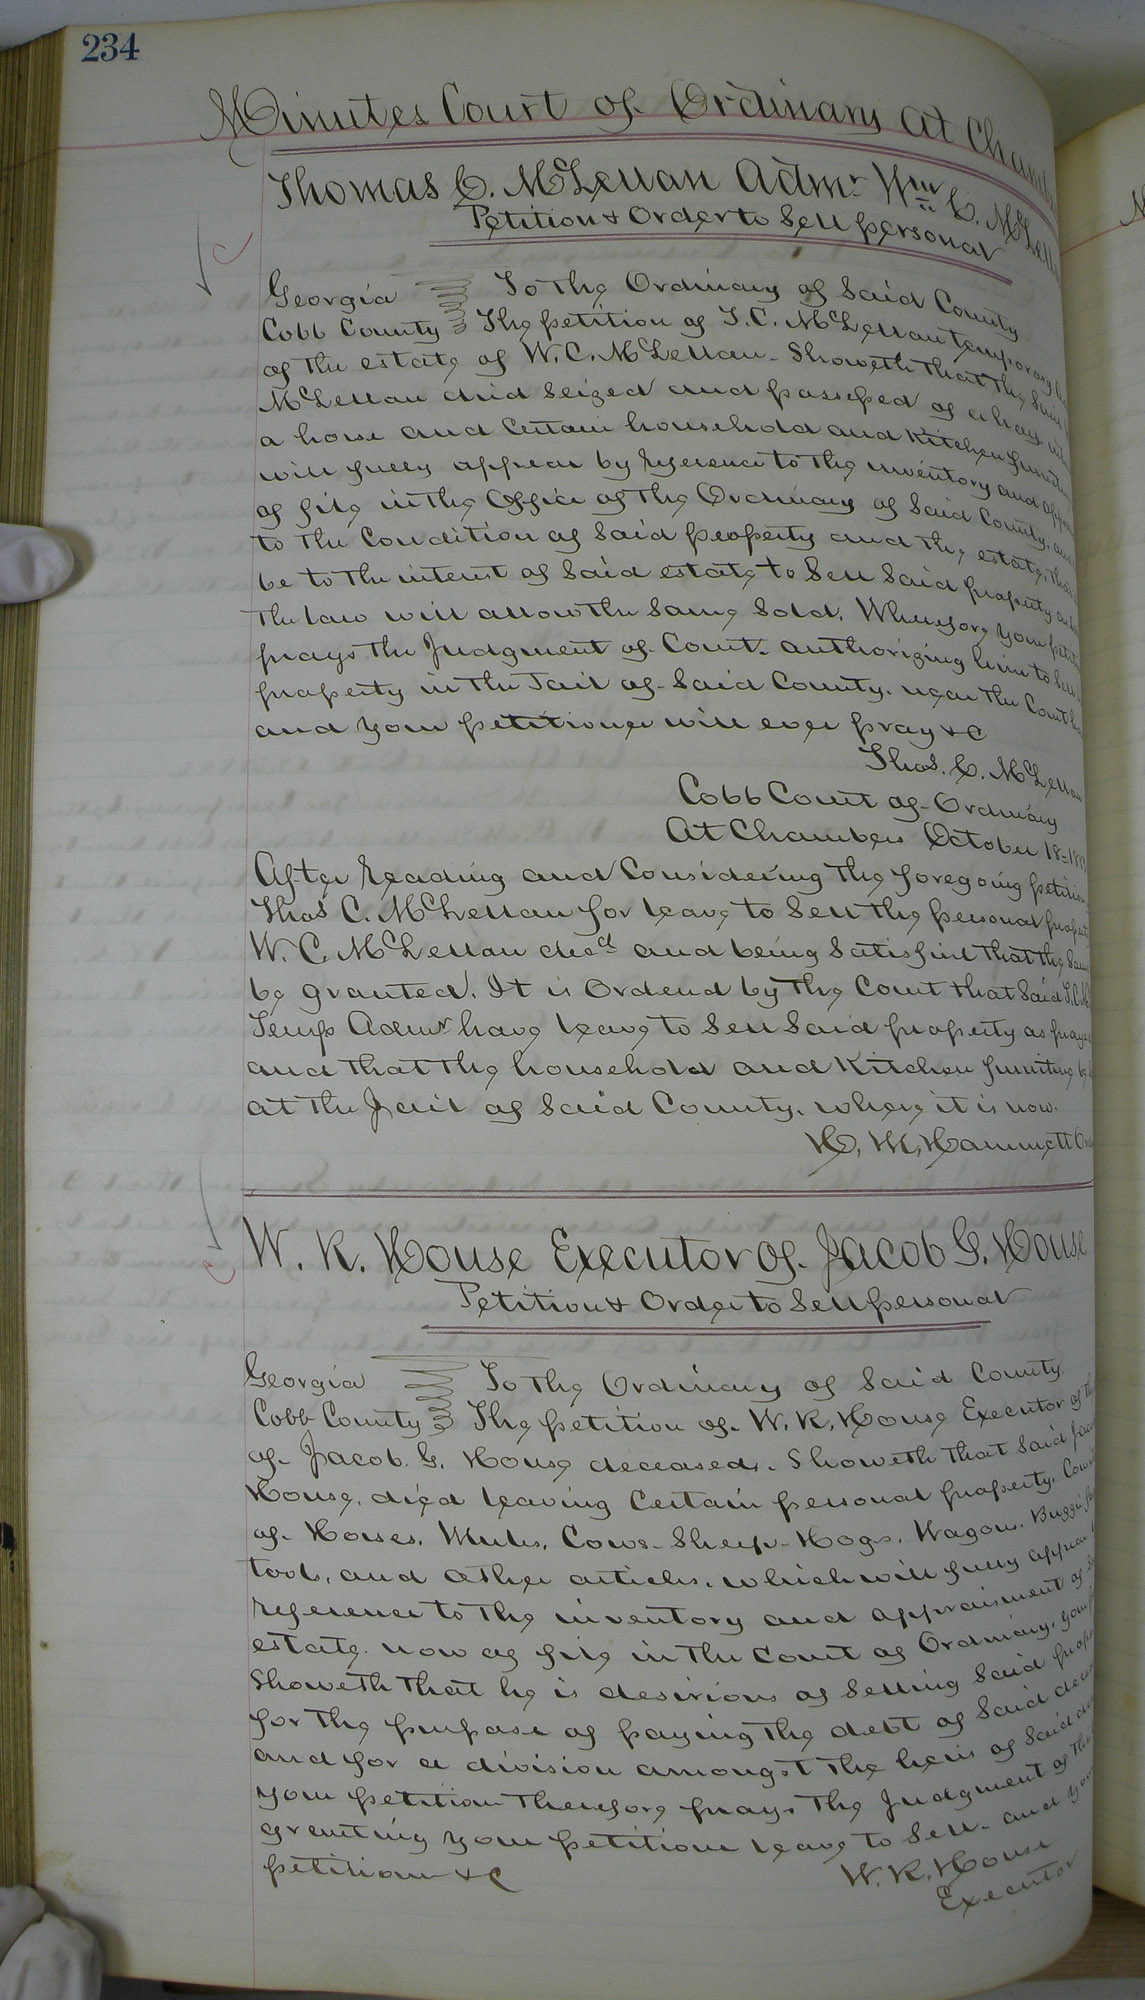 234
Minutes Court of Ordinary At
Thomas C. McLellan Admr Wm C.
Petition & Order to Sell personal
Georgia To the Ordinary of Said County
Cobb County The petition of T. C. McLellan temporary
of the estate of W. C. McLellan. Showeth that the Said
McLellan died seized and possessed of a
a horse and Certain household and Kitchen
will fully appear by reference to the inventory and
of file in the Office of the Ordinary of Said County,
to the Condition of Said property and the estate,
be to the interest of Said estate to Sell Said property
the law will allow the Same Sold. Wherefore your
prays the Judgment of Court. authorizing him to Sell
property in the Jail of Said County. near the Court
and your petitioner will ever pray &C
Thos. C. McLellan
Cobb Court of Ordinary
At Chambers October 18
After reading and Considering the foregoing petition
Thos C. McLellan for leave to Sell the personal
W. C. McLellan decd and being Satisfied that the
be granted. It is Ordered by the Court that Said
Temp Admr have leave to Sell Said property as
and that the household and Kitchen furniture
at the Jail of Said County. where it is now.
H. M. Hammett
W. R. House Executor of Jacob G. House
Petition & Order to Sell personal
Georgia To the Ordinary of Said County
Cobb County The petition of W. R. House Executor of
of Jacob. G. House deceased. Showeth that Said
House, died leaving Certain personal property.
of Horses, Mules, Cows. Sheep. Hogs. Wagons.
tools, and Other articles. which will fully appear
reference to the inventory and appraisment of
estate now of file in the Court of Ordinary.
Showeth that he is desirious of Selling Said
for the purpose of paying the debt of Said
and for a division amongst the heirs of Said
your petition therefore prays the Judgment of
granting your petition leave to Sell. and
petition &C W. R. House
Executor